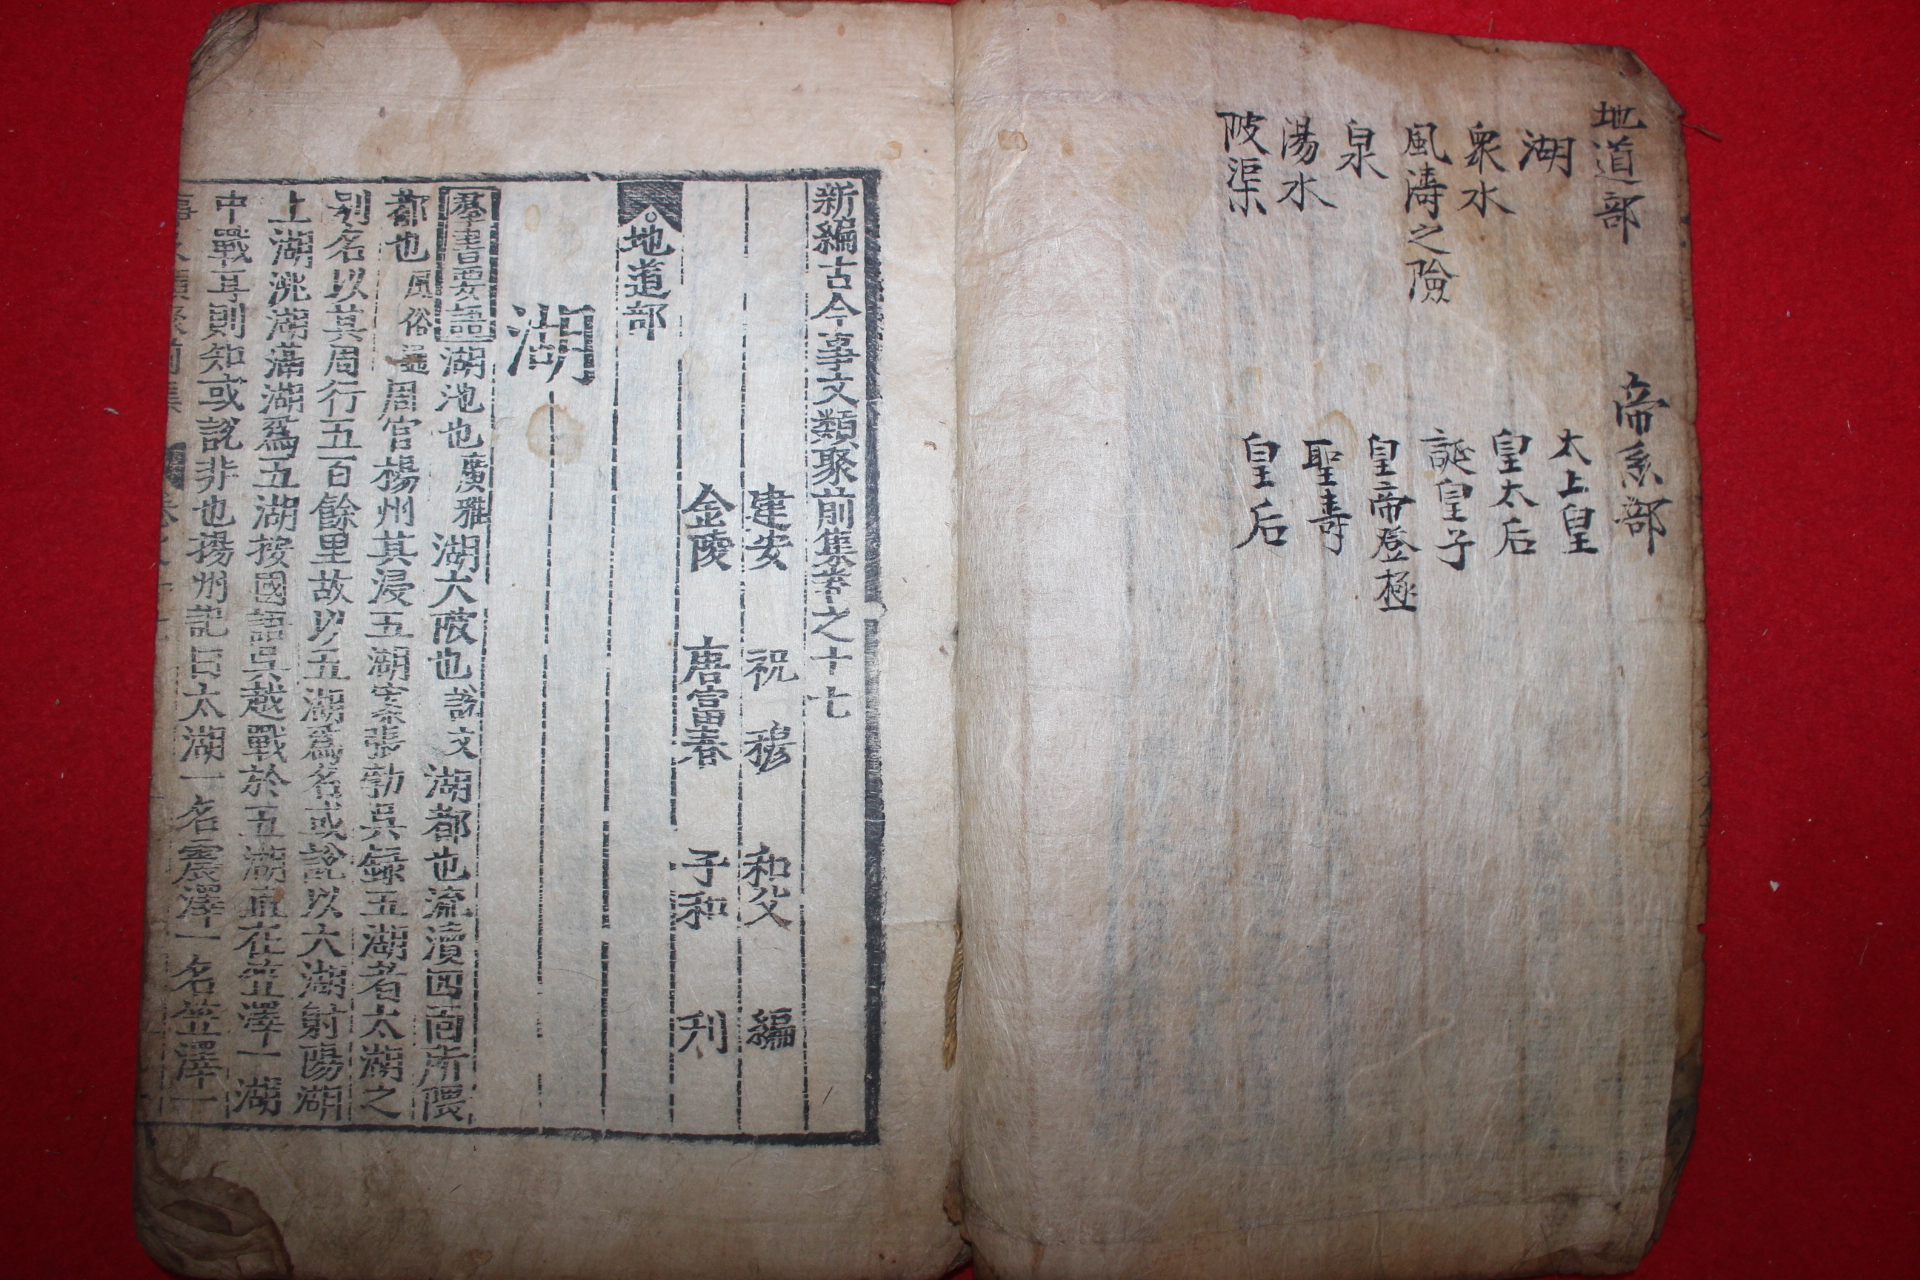 地道部
湖
衆水
風濤之險
泉
湯水
陂渠
帝系部
太上皇
皇太后
誕皇子
皇帝登極
聖壽
皇后
新編古今事文類聚前集卷之十七
建安 祝 穆 和父 編
金陵 唐富春 子和 刋
地道部
湖
羣書要語湖池也廣雅湖大陂也說文湖都也流瀆四面所隈
都也風俗通周官楊州其浸五湖案張勃吳録五湖者太湖之
别名以其周行五百餘里故以五湖爲名或說以太湖射陽湖
上湖洮湖滆湖爲五湖按國語吳越戰於五湖直在笠澤一湖
中戰耳則知或說非也揚州記曰太湖一名震澤一名笠澤一